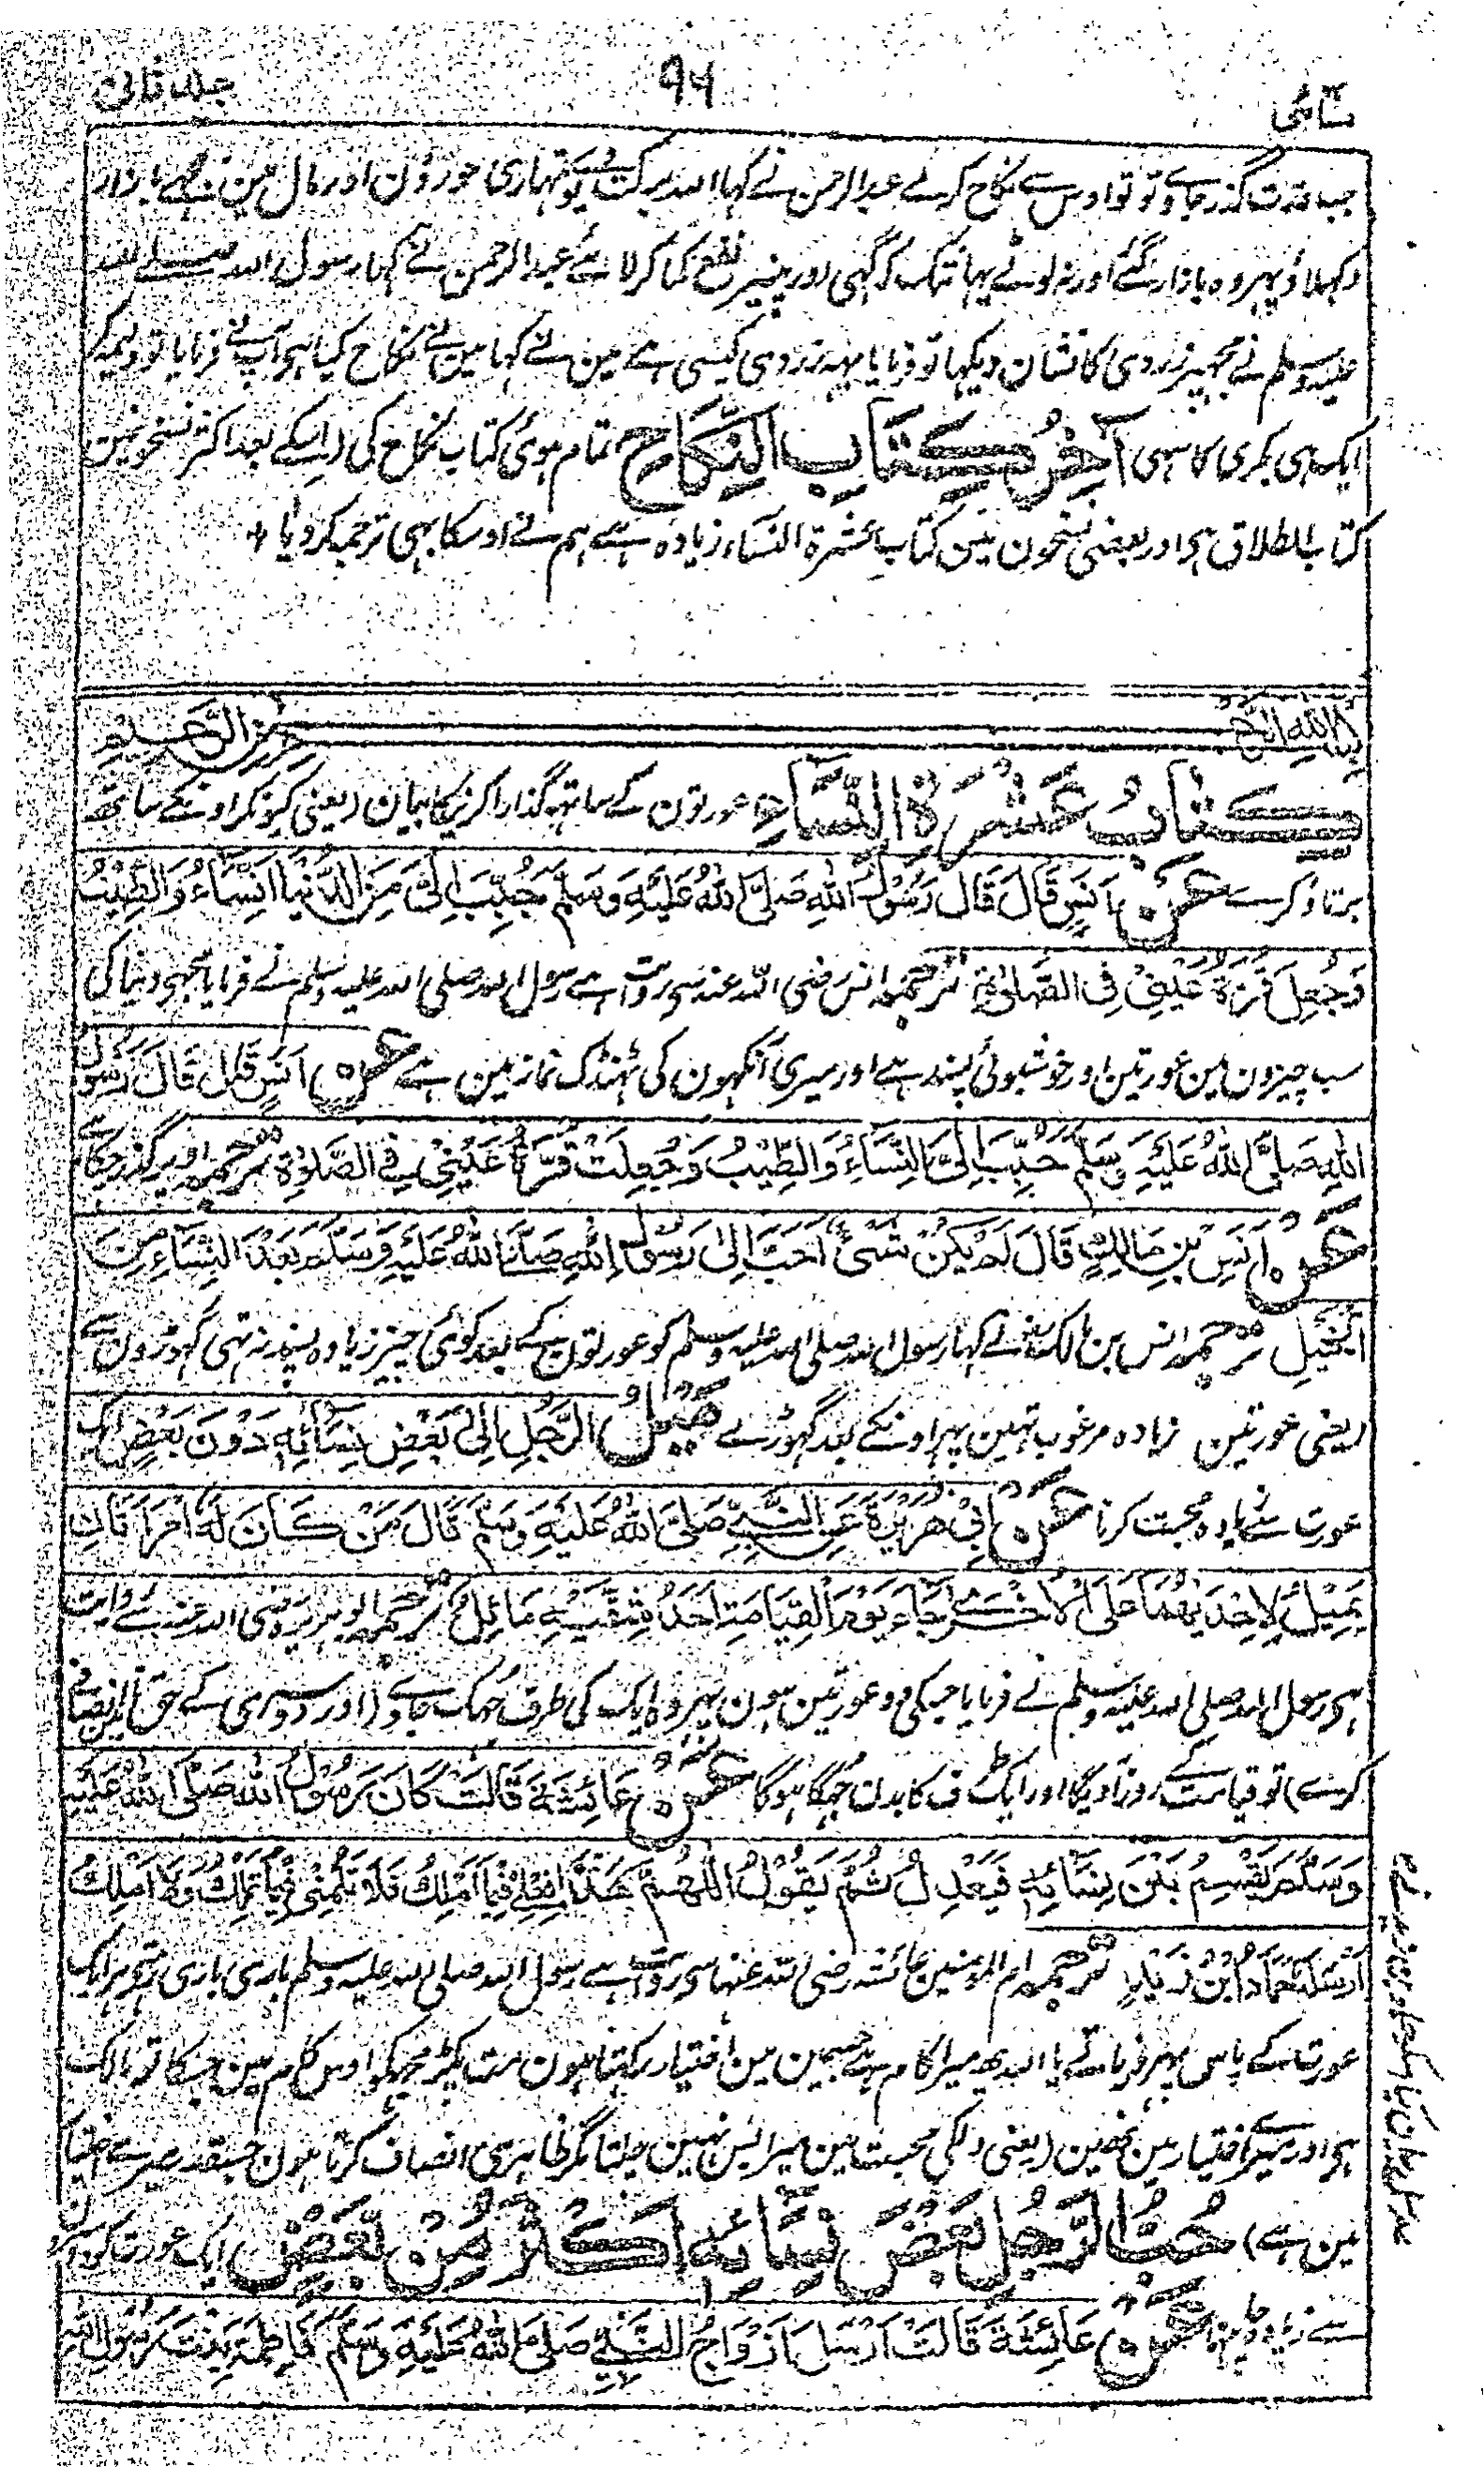 نسائی
۹۶
جلد ثانی
جب عدت گذر جاوے تو تو اوس سے نکاح کر لے عبدالرحمن نے کہا اللہ برکت دیوے تمہاری جوروؤن اور مال مین مجھے بازار
دکہلاؤ پہر وہ بازار گئے اور نہ لوٹے یہانتک کہ گہی اور پنیر نفع کما کر لائے عبدالرحمن نے کہا رسول اللہ صلے اللہ
علیہ وسلم نے مجہپر زردی کا نشان دیکہا تو فرمایا یہہ زردی کیسی ہے مین نے کہا مین نے نکاح کیا ہی آپ نے فرمایا تو ولیمہ کر
ایک ہی بکری کا سہی آخِرُ كِتَابِ النِّكَاحِ تمام ہوئی کتاب نکاح کی (اسکے بعد اکثر نسخونمین
کتاب الطلاق ہی اور بعضی نسخون مین کتاب عشرۃ النساء زیادہ ہے ہم نے اوسکا بہی ترجمہ کر دیا
بسم الله الرحمن الرحيم
كِتَابُ عِشْرَةِ النِّسَاءِ عورتون کے ساتہہ گذارا کرنیکا بیان (یعنی کیونکر اونکے ساتھ
برتاؤ کرے عَنْ أَنَسٍ قَالَ قَالَ رَسُولُ اللهِ صَلَّى اللهُ عَلَيْهِ وَسَلَّمَ حُبِّبَ إِلَيَّ مِنَ الدُّنْيَا النِّسَاءُ وَالطِّيْبُ
وَجُعِلَ قُرَّةُ عَيْنِيْ فِى الصَّلٰوةِ ترجمہ انس رضی اللہ عنہ سے روایت ہے رسول اللہ صلی اللہ علیہ وسلم نے فرمایا مجھے دنیا کی
سب چیزون مین عورتین اور خوشبوئی پسند ہے اور میری آنکہون کی ٹہنڈک نماز مین ہے عَنْ أَنَسٍ قَالَ قَالَ رَسُولُ
اللهِ صَلَّى اللهُ عَلَيْهِ وَسَلَّمَ حُبِّبَ إِلَيَّ النِّسَاءُ وَالطِّيْبُ وَجُعِلَتْ قُرَّةُ عَيْنِيْ فِي الصَّلٰوةِ ترجمہ اوپر گذر چکا ہے
عَنْ أَنَسِ بْنِ مَالِكٍ قَالَ لَمْ يَكُنْ شَيْءٌ أَحَبَّ إِلٰى رَسُولِ اللهِ صَلَّى اللهُ عَلَيْهِ وَسَلَّمَ بَعْدَ النِّسَاءِ مِنَ
الْخَيْلِ ترجمہ انس بن مالک نے کہا رسول اللہ صلی اللہ علیہ وسلم کو عورتون کے بعد کوئی چیز زیادہ پسند نہ تہی گہوڑون سے
(یعنی عورتین زیادہ مرغوب تہین پہر اونکے بعد گہوڑے مَيْلُ الرَّجُلِ إِلٰى بَعْضِ نِسَائِهِ دُوْنَ بَعْضٍ ایک
عورت سے زیادہ محبت کرنا عَنْ أَبِيْ هُرَيْرَةَ عَنِ النَّبِيِّ صَلَّى اللهُ عَلَيْهِ وَسَلَّمَ قَالَ مَنْ كَانَ لَهُ امْرَأَتَانِ
يَمِيْلُ لِإِحْدٰيهُمَا عَلَى الْأُخْرٰى جَاءَ يَوْمَ الْقِيَامَةِ أَحَدُ شِقَّيْهِ مَائِلٌ ترجمہ ابوہریرہ رضی اللہ عنہ سے روایت
ہی رسول اللہ صلی اللہ علیہ وسلم نے فرمایا جسکی دو عورتین ہون پہر وہ ایک کی طرف جہک جاوے (اور دوسری کے حق مین انصاف
کرے) تو قیامت کے روز آویگا اور ایک طرف کا بدن جہکا ہوگا عَنْ عَائِشَةَ قَالَتْ كَانَ رَسُولُ اللهِ صَلَّى اللهُ عَلَيْهِ
وَسَلَّمَ يَقْسِمُ بَيْنَ نِسَائِهِ فَيَعْدِلُ ثُمَّ يَقُوْلُ اللّٰهُمَّ هٰذَا فِعْلِيْ فِيْمَا أَمْلِكُ فَلَا تَلُمْنِيْ فِيْمَا تَمْلِكُ وَلَا أَمْلِكُ
أَرْسَلَهُ حَمَّادُ بْنُ زَيْدٍ ترجمہ ام المؤمنین عائشہ رضی اللہ عنہا سے روایت ہے رسول اللہ صلی اللہ علیہ وسلم باری باری رہتے ہر ایک
عورت کے پاس پہر فرماتے یا اللہ یہ میرا کام ہے جسمین مین اختیار رکہتا ہون مت پکڑ مجہکو اوس کام مین جسکا تو مالک
ہی اور میرے اختیار مین نہین (یعنی دلکی محبت مین میرا بس نہین چلتا مگر ظاہری انصاف کرتا ہون جسقدر میرے اختیار
مین ہے) حُبُّ الرَّجُلِ بَعْضَ نِسَائِهِ أَكْثَرَ مِنْ بَعْضٍ ایک عورت کو دوسری
سے زیادہ چاہنا عَنْ عَائِشَةَ قَالَتْ أَرْسَلَ أَزْوَاجُ النَّبِيِّ صَلَّى اللهُ عَلَيْهِ وَسَلَّمَ فَاطِمَةَ بِنْتَ رَسُولِ اللهِ